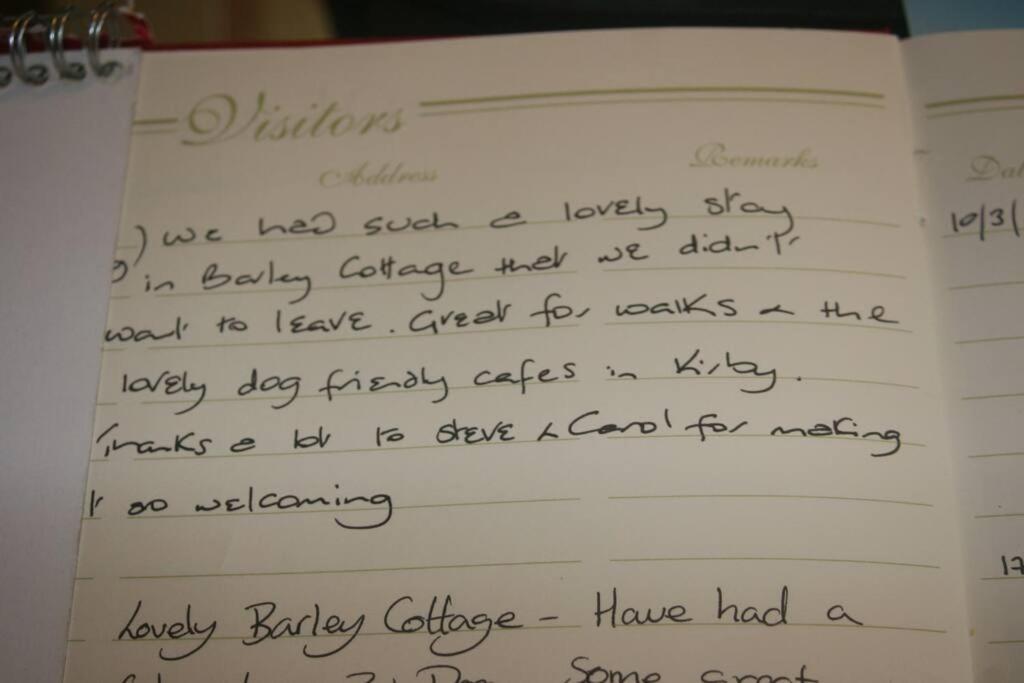 Visitors
Address Remarks Dat
) we had such a lovely stay 10/3/
in Barley Cottage that we didn't
want to leave. Great for walks & the
lovely dog friendly cafes in Kirby.
Thanks a lot to Steve & Carol for making
it so welcoming
17
Lovely Barley Cottage - Have had a
Some great